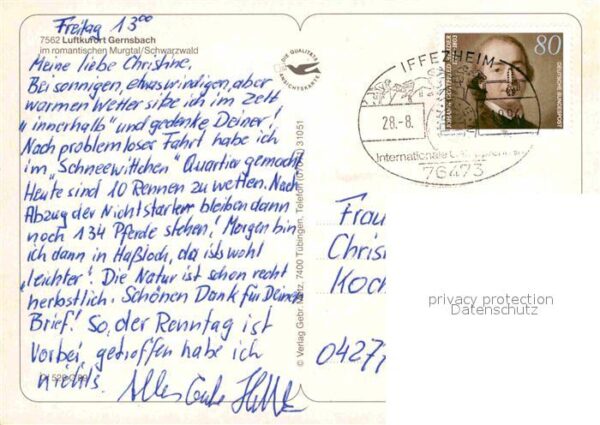 Freitag 13⁰⁰
7562 Luftkurort Gernsbach
im romantischen Murgtal/Schwarzwald
Meine liebe Christine,
Bei sonnigen, etwas windigen, aber
warmen Wetter sitze ich im Zelt
"innerhalb" und gedenke Deiner!
Nach problemloser Fahrt habe ich
im "Schneewittchen" Quartier gemacht
Heute sind 10 Rennen zu wetten. Nach
Abzug der Nichtstarter bleiben dann
noch 134 Pferde stehen! Morgen bin
ich dann in Haßloch, da ists wohl
"leichter". Die Natur ist schon recht
herbstlich. Schönen Dank für Deinen
Brief! So, der Renntag ist
vorbei, getroffen habe ich
nichts. Alles Gute
DIE QUALITÄTS
ANSICHTSKARTE
© Verlag Gebr. Metz, 7400 Tübingen, Telefon (07071) 31051
80
DEUTSCHE BUNDESPOST
IFFEZHEIM
28.-8.
Internationale
76473
Frau
Chris
Koch
0427
privacy protection
Datenschutz